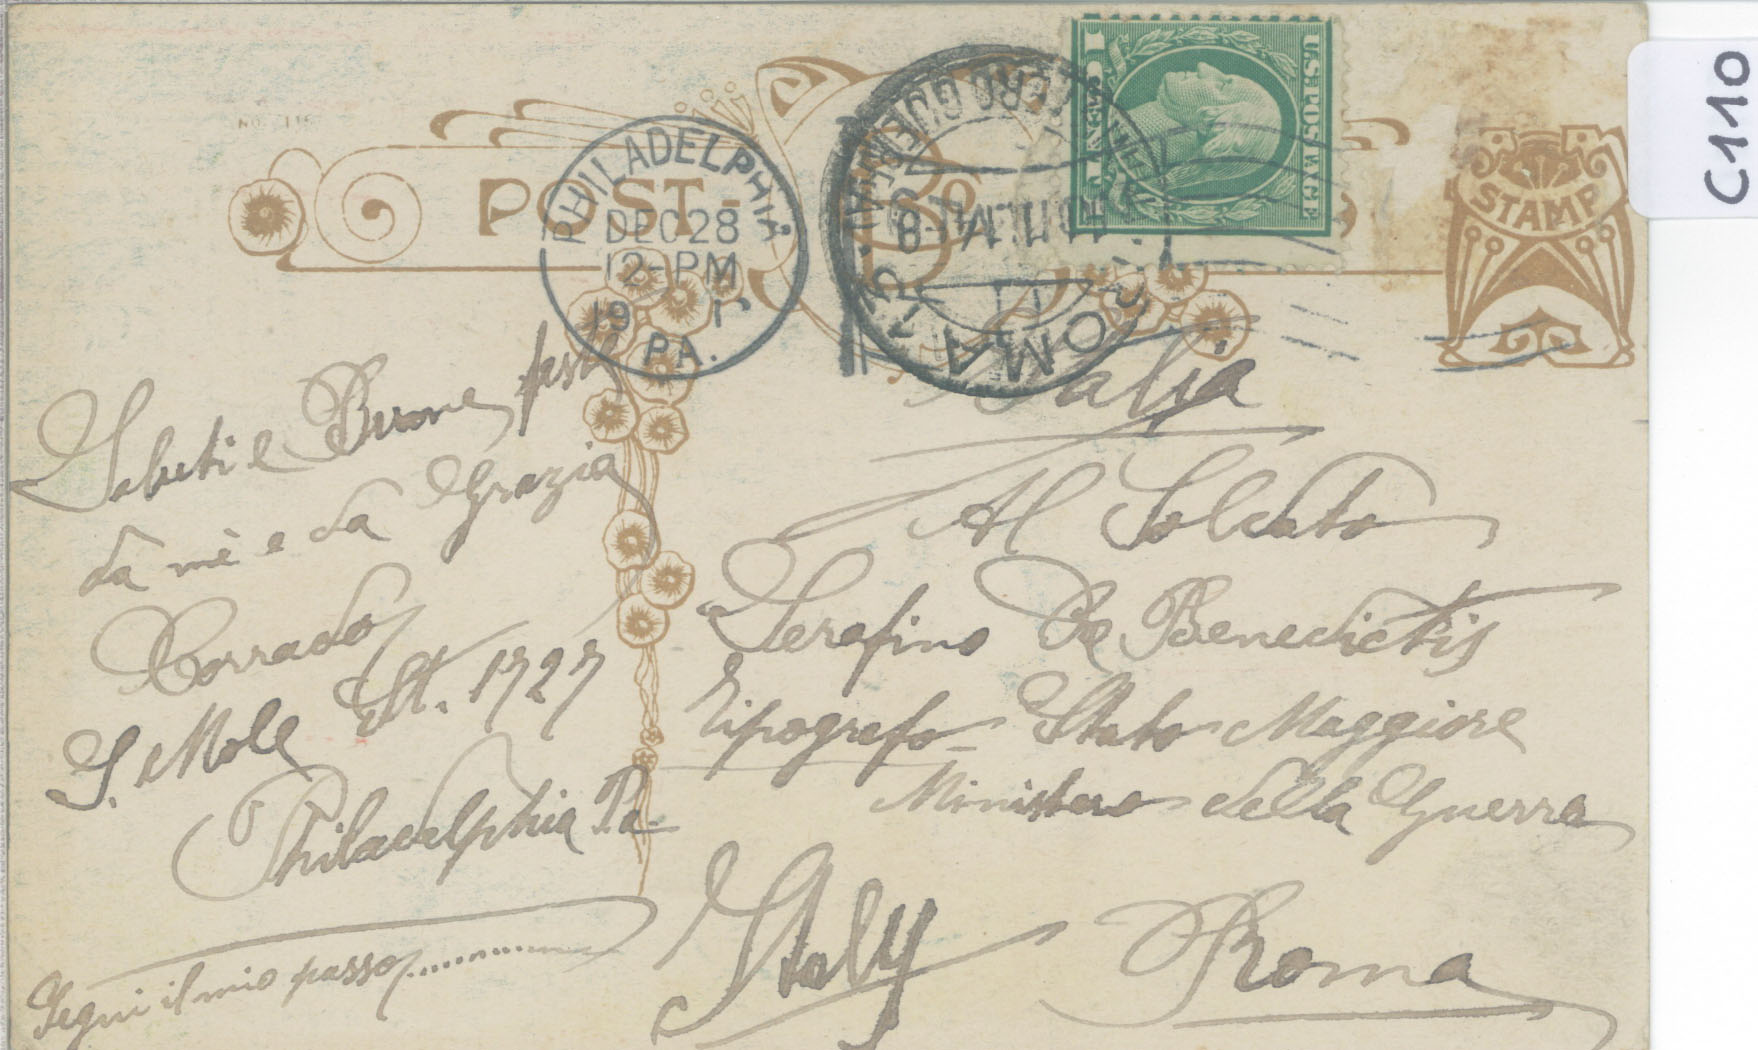 C110
U.S. POSTAGE
1 CENT 1
POST
STAMP
PHILADELPHIA
DEC 28
12-PM
19
PA.
ROMA
Italia
Saluti e Buone feste
da mè e da Grazia
Corrado
S. Mole St. 1727
Philadelphia Pa
Segui il mio passo..............
Al Soldato
Serafino De Benedictis
Tipografo Stato Maggiore
Ministero della Guerra
Italy Roma